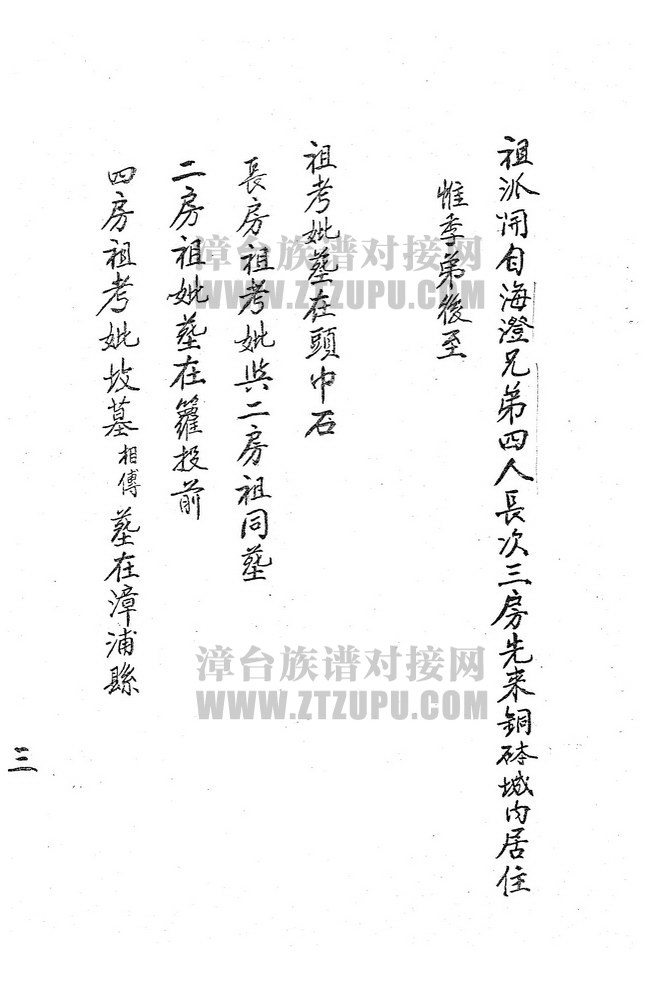 祖派開自海澄兄弟四人長次三房先来銅砵城内居住
惟季弟後至
祖考妣墓在頭中石
長房祖考妣與二房祖同墓
二房祖妣墓在籮投前
四房祖考妣坟墓相傳墓在漳浦縣
三
漳台族谱对接网
WWW.ZTZUPU.COM
漳台族谱对接网
WWW.ZTZUPU.COM